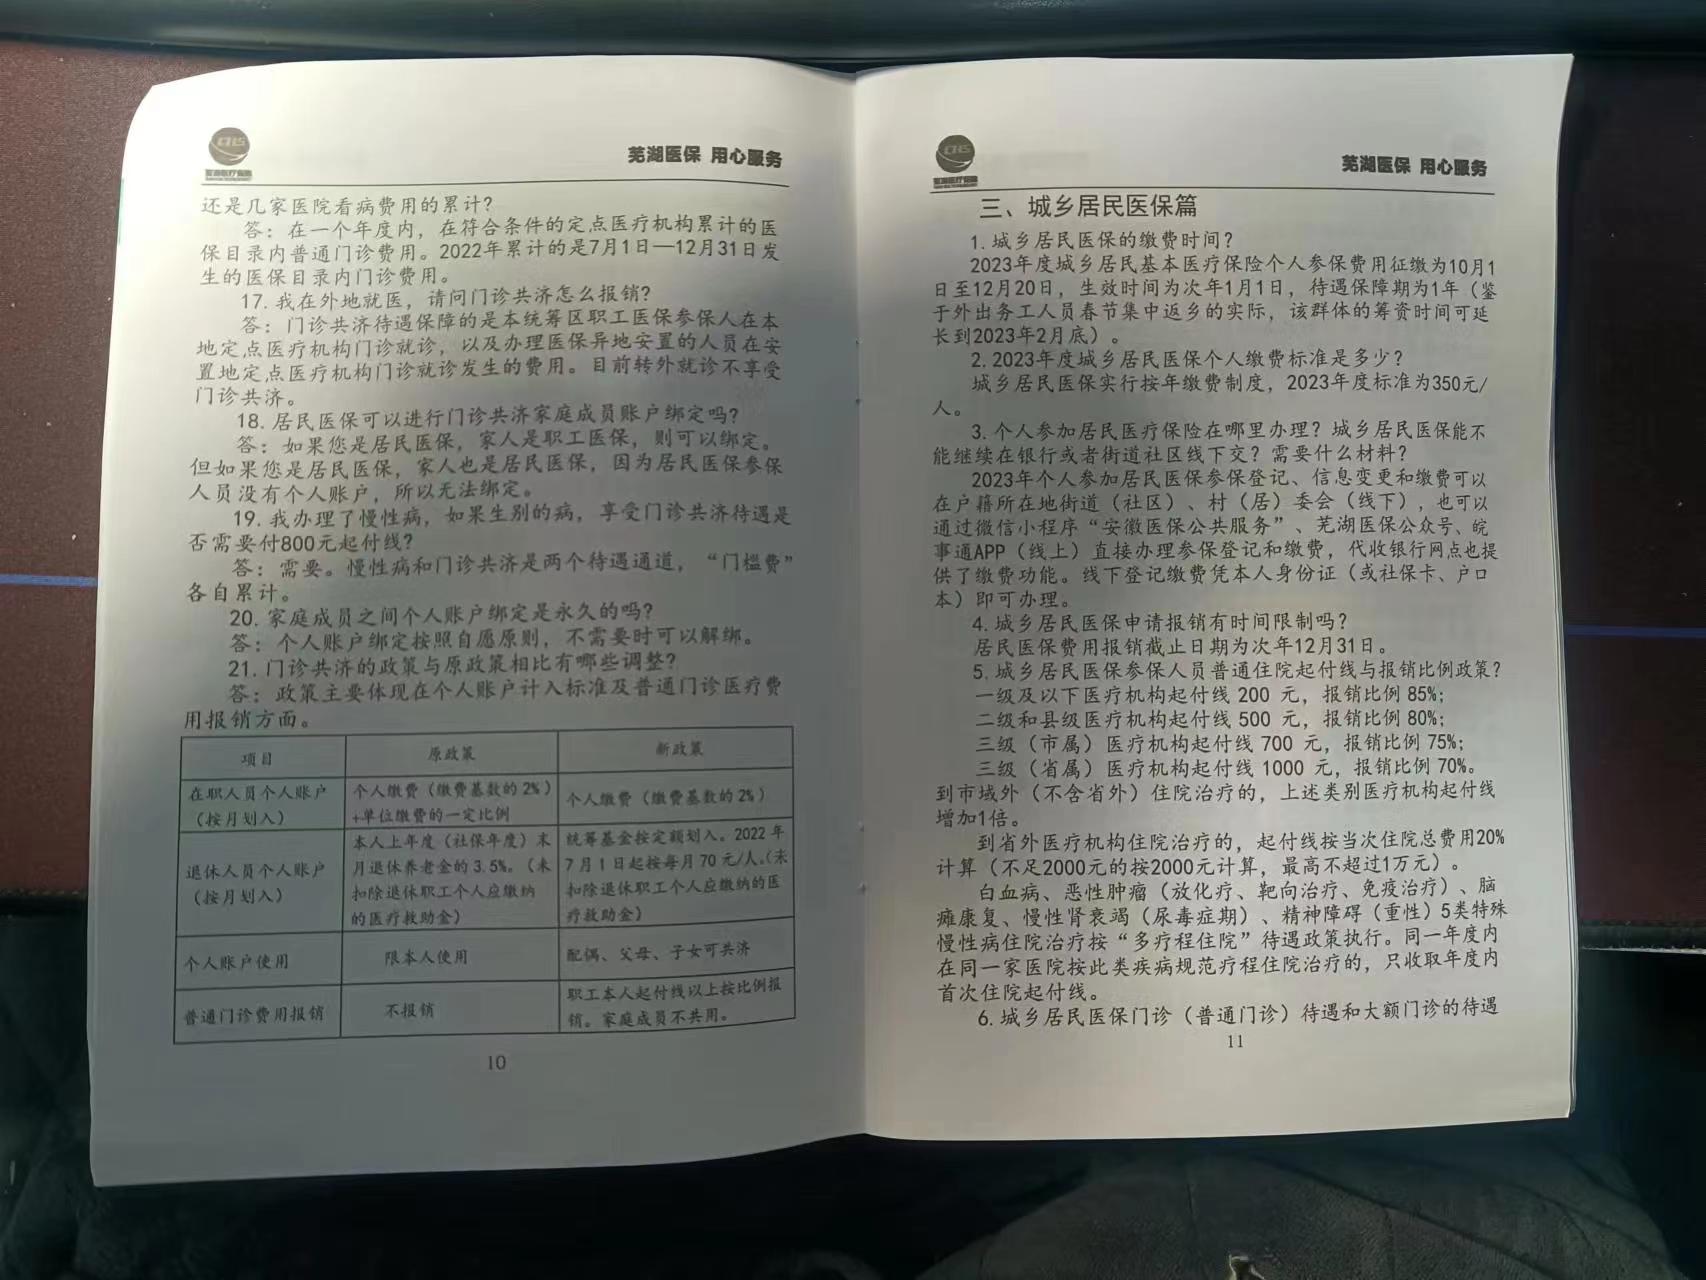 CHS
芜湖医疗保障
芜湖医保 用心服务
还是几家医院看病费用的累计?
答：在一个年度内，在符合条件的定点医疗机构累计的医
保目录内普通门诊费用。2022年累计的是7月1日—12月31日发
生的医保目录内门诊费用。
17. 我在外地就医，请问门诊共济怎么报销?
答：门诊共济待遇保障的是本统筹区职工医保参保人在本
地定点医疗机构门诊就诊，以及办理医保异地安置的人员在安
置地定点医疗机构门诊就诊发生的费用。目前转外就诊不享受
门诊共济。
18. 居民医保可以进行门诊共济家庭成员账户绑定吗?
答：如果您是居民医保，家人是职工医保，则可以绑定。
但如果您是居民医保，家人也是居民医保，因为居民医保参保
人员没有个人账户，所以无法绑定。
19. 我办理了慢性病，如果生别的病，享受门诊共济待遇是
否需要付800元起付线?
答：需要。慢性病和门诊共济是两个待遇通道，“门槛费”
各自累计。
20. 家庭成员之间个人账户绑定是永久的吗?
答：个人账户绑定按照自愿原则，不需要时可以解绑。
21. 门诊共济的政策与原政策相比有哪些调整?
答：政策主要体现在个人账户计入标准及普通门诊医疗费
用报销方面。
项目 原政策 新政策
在职人员个人账户
（按月划入）
个人缴费（缴费基数的2%）
+单位缴费的一定比例
个人缴费（缴费基数的2%）
退休人员个人账户
（按月划入）
本人上年度（社保年度）末
月退休养老金的3.5%。（未
扣除退休职工个人应缴纳
的医疗救助金）
统筹基金按定额划入。2022年
7月1日起按每月70元/人。（未
扣除退休职工个人应缴纳的医
疗救助金）
个人账户使用 限本人使用 配偶、父母、子女可共济
普通门诊费用报销 不报销
职工本人起付线以上按比例报
销。家庭成员不共用。
10
CHS
芜湖医疗保障
芜湖医保 用心服务
三、城乡居民医保篇
1. 城乡居民医保的缴费时间?
2023年度城乡居民基本医疗保险个人参保费用征缴为10月1
日至12月20日，生效时间为次年1月1日，待遇保障期为1年（鉴
于外出务工人员春节集中返乡的实际，该群体的筹资时间可延
长到2023年2月底）。
2. 2023年度城乡居民医保个人缴费标准是多少?
城乡居民医保实行按年缴费制度，2023年度标准为350元/
人。
3. 个人参加居民医疗保险在哪里办理? 城乡居民医保能不
能继续在银行或者街道社区线下交? 需要什么材料?
2023年个人参加居民医保参保登记、信息变更和缴费可以
在户籍所在地街道（社区）、村（居）委会（线下），也可以
通过微信小程序“安徽医保公共服务”、芜湖医保公众号、皖
事通APP（线上）直接办理参保登记和缴费，代收银行网点也提
供了缴费功能。线下登记缴费凭本人身份证（或社保卡、户口
本）即可办理。
4. 城乡居民医保申请报销有时间限制吗?
居民医保费用报销截止日期为次年12月31日。
5. 城乡居民医保参保人员普通住院起付线与报销比例政策?
一级及以下医疗机构起付线 200 元，报销比例 85%;
二级和县级医疗机构起付线 500 元，报销比例 80%;
三级（市属）医疗机构起付线 700 元，报销比例 75%;
三级（省属）医疗机构起付线 1000 元，报销比例 70%。
到市域外（不含省外）住院治疗的，上述类别医疗机构起付线
增加1倍。
到省外医疗机构住院治疗的，起付线按当次住院总费用20%
计算（不足2000元的按2000元计算，最高不超过1万元）。
白血病、恶性肿瘤（放化疗、靶向治疗、免疫治疗）、脑
瘫康复、慢性肾衰竭（尿毒症期）、精神障碍（重性）5类特殊
慢性病住院治疗按“多疗程住院”待遇政策执行。同一年度内
在同一家医院按此类疾病规范疗程住院治疗的，只收取年度内
首次住院起付线。
6. 城乡居民医保门诊（普通门诊）待遇和大额门诊的待遇
11